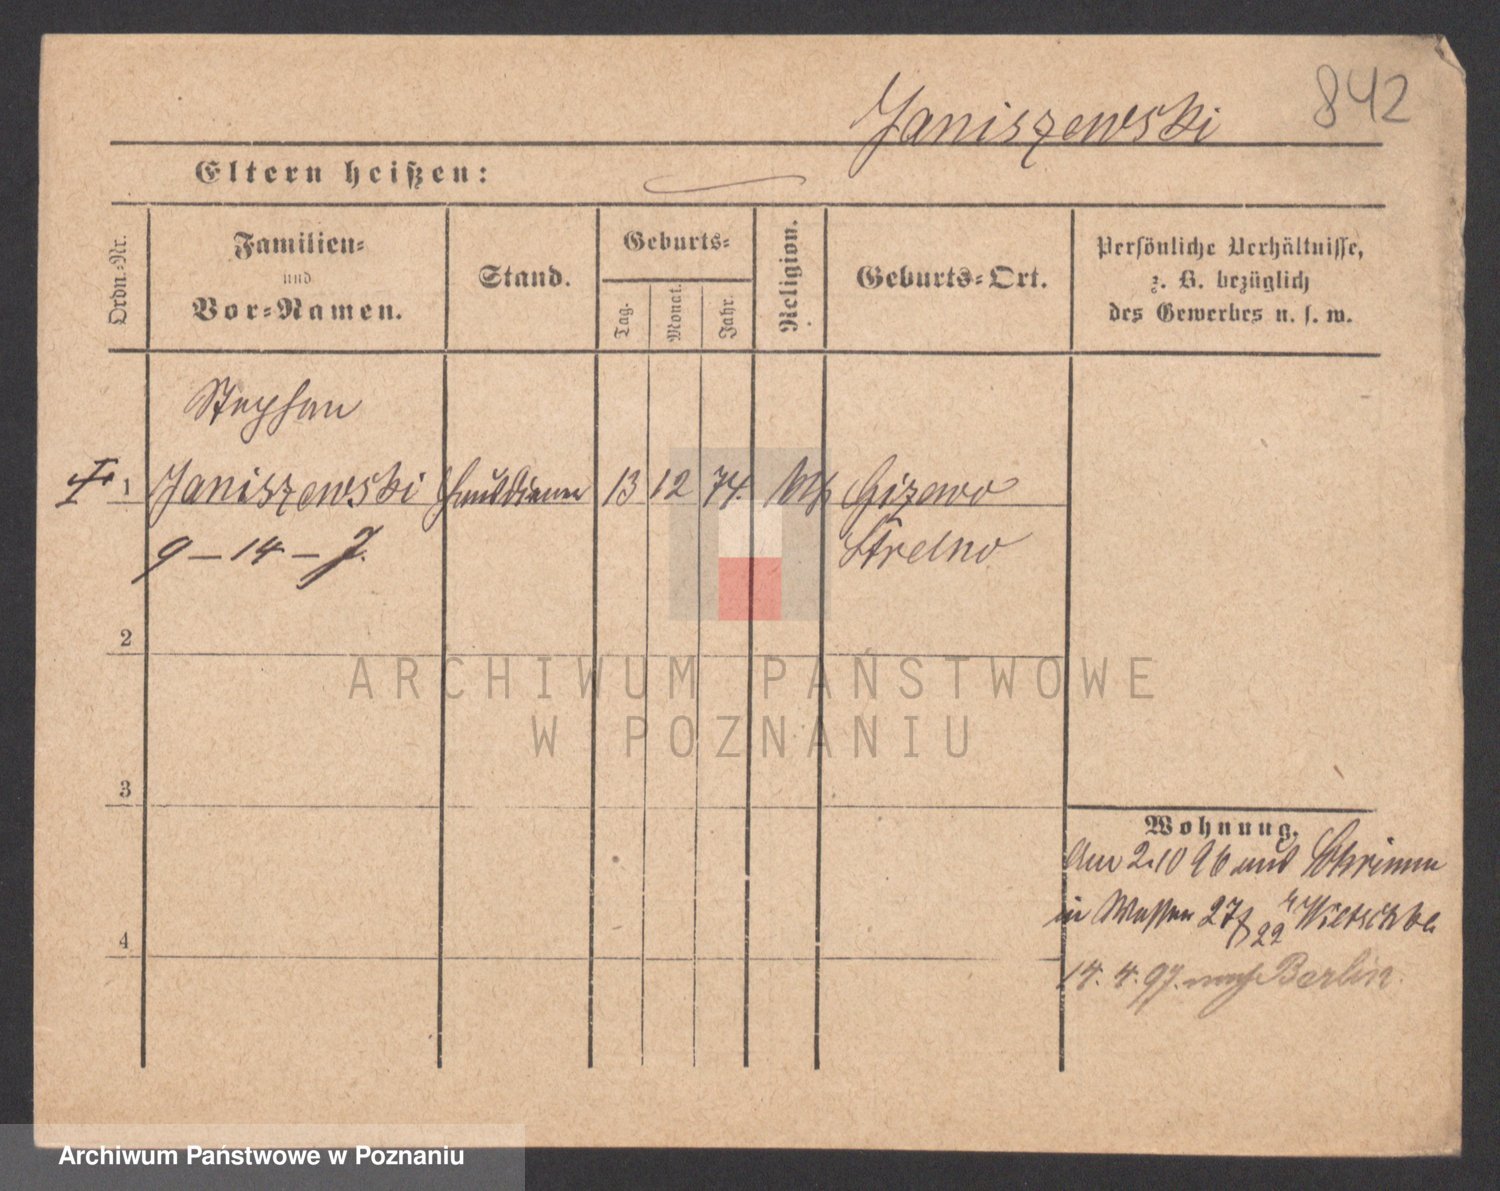 842
Janiszewski
Eltern heißen:
Ordn.-Nr.
Familien-
und
Vor-Namen.
Stand.
Geburts-
Tag.
Monat.
Jahr.
Religion.
Geburts-Ort.
Persönliche Verhältnisse,
z. B. bezüglich
des Gewerbes u. s. w.
Stephan
1 Janiszewski 13 12 74. Gizewo
9 – 14 – J. Strelno
2
ARCHIWUM PAŃSTWOWE
W POZNANIU
3
Wohnung.
Am 2.10 96 aus Schrimm
in 27/22
4
14. 4. 97. nach Berlin.
Archiwum Państwowe w Poznaniu